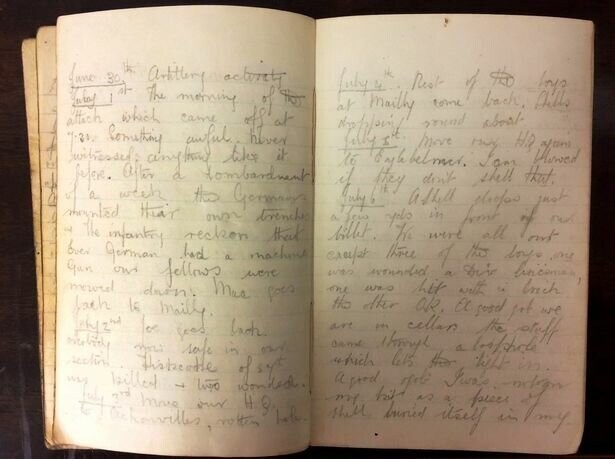 June 30th Artillery activity
July 1st The morning of the
attack which came off at
7.30. Something awful. Never
witnessed anything like it
before. After a bombardment
of a week the Germans
mounted their own trenches
+ the infantry reckon that
every German had a machine
Gun our fellows were
mowed down. Mac goes
back to Mailly.
July 2nd Joe goes back.
everybody now safe in our
section. of sigs
killed + two wounded.
July 3rd Move our H.Q.
to Auchonvillers, rotten hole.
July 4th. Rest of the boys
at Mailly come back. Shells
dropping round about.
July 5th Move our HQ again
to Englebelmer. I am blowed
if they don't shell that.
July 6th A shell drops just
a few yds in front of our
billet. We were all out
except three of the boys one
was wounded a Div lineman,
one was hit with a brick
the other O.K. A good job we
are in cellar the stuff
came through a loophole
which lets the light in.
A good job I was
my bed as a piece of
shell buried itself in my